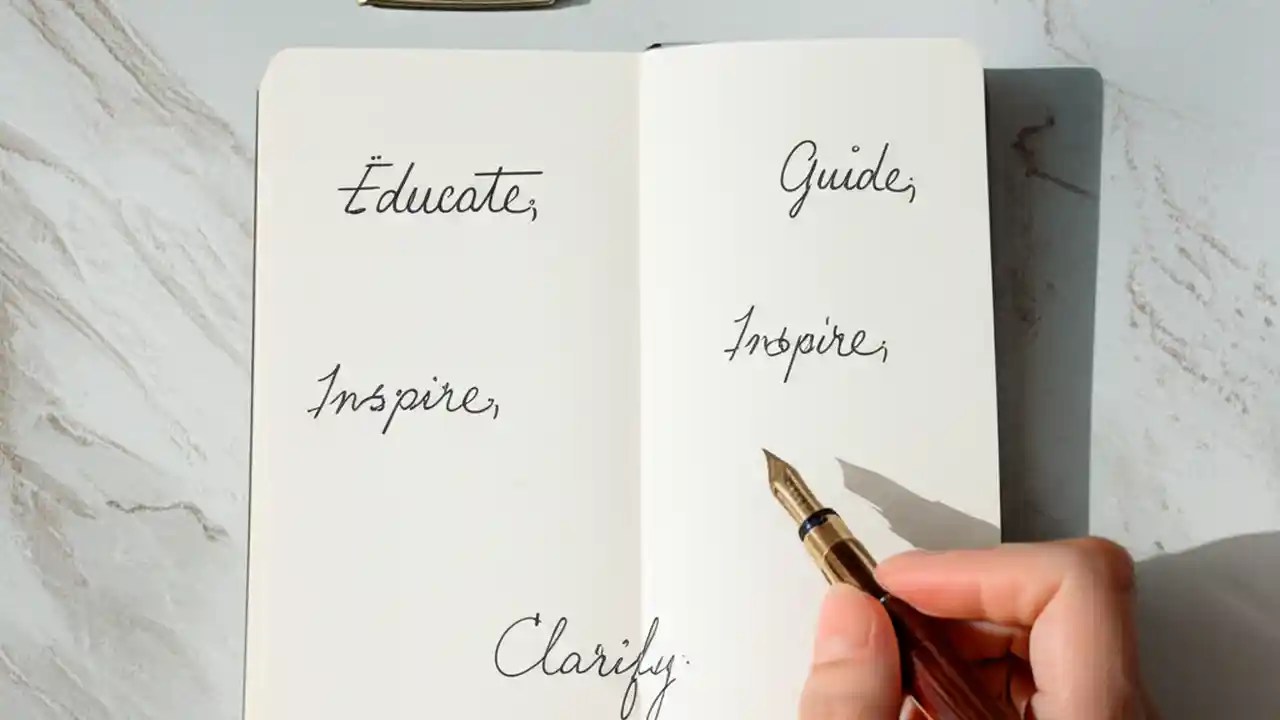 Ëducate,
Inspire,
Guide,
Inspire,
Clarify.